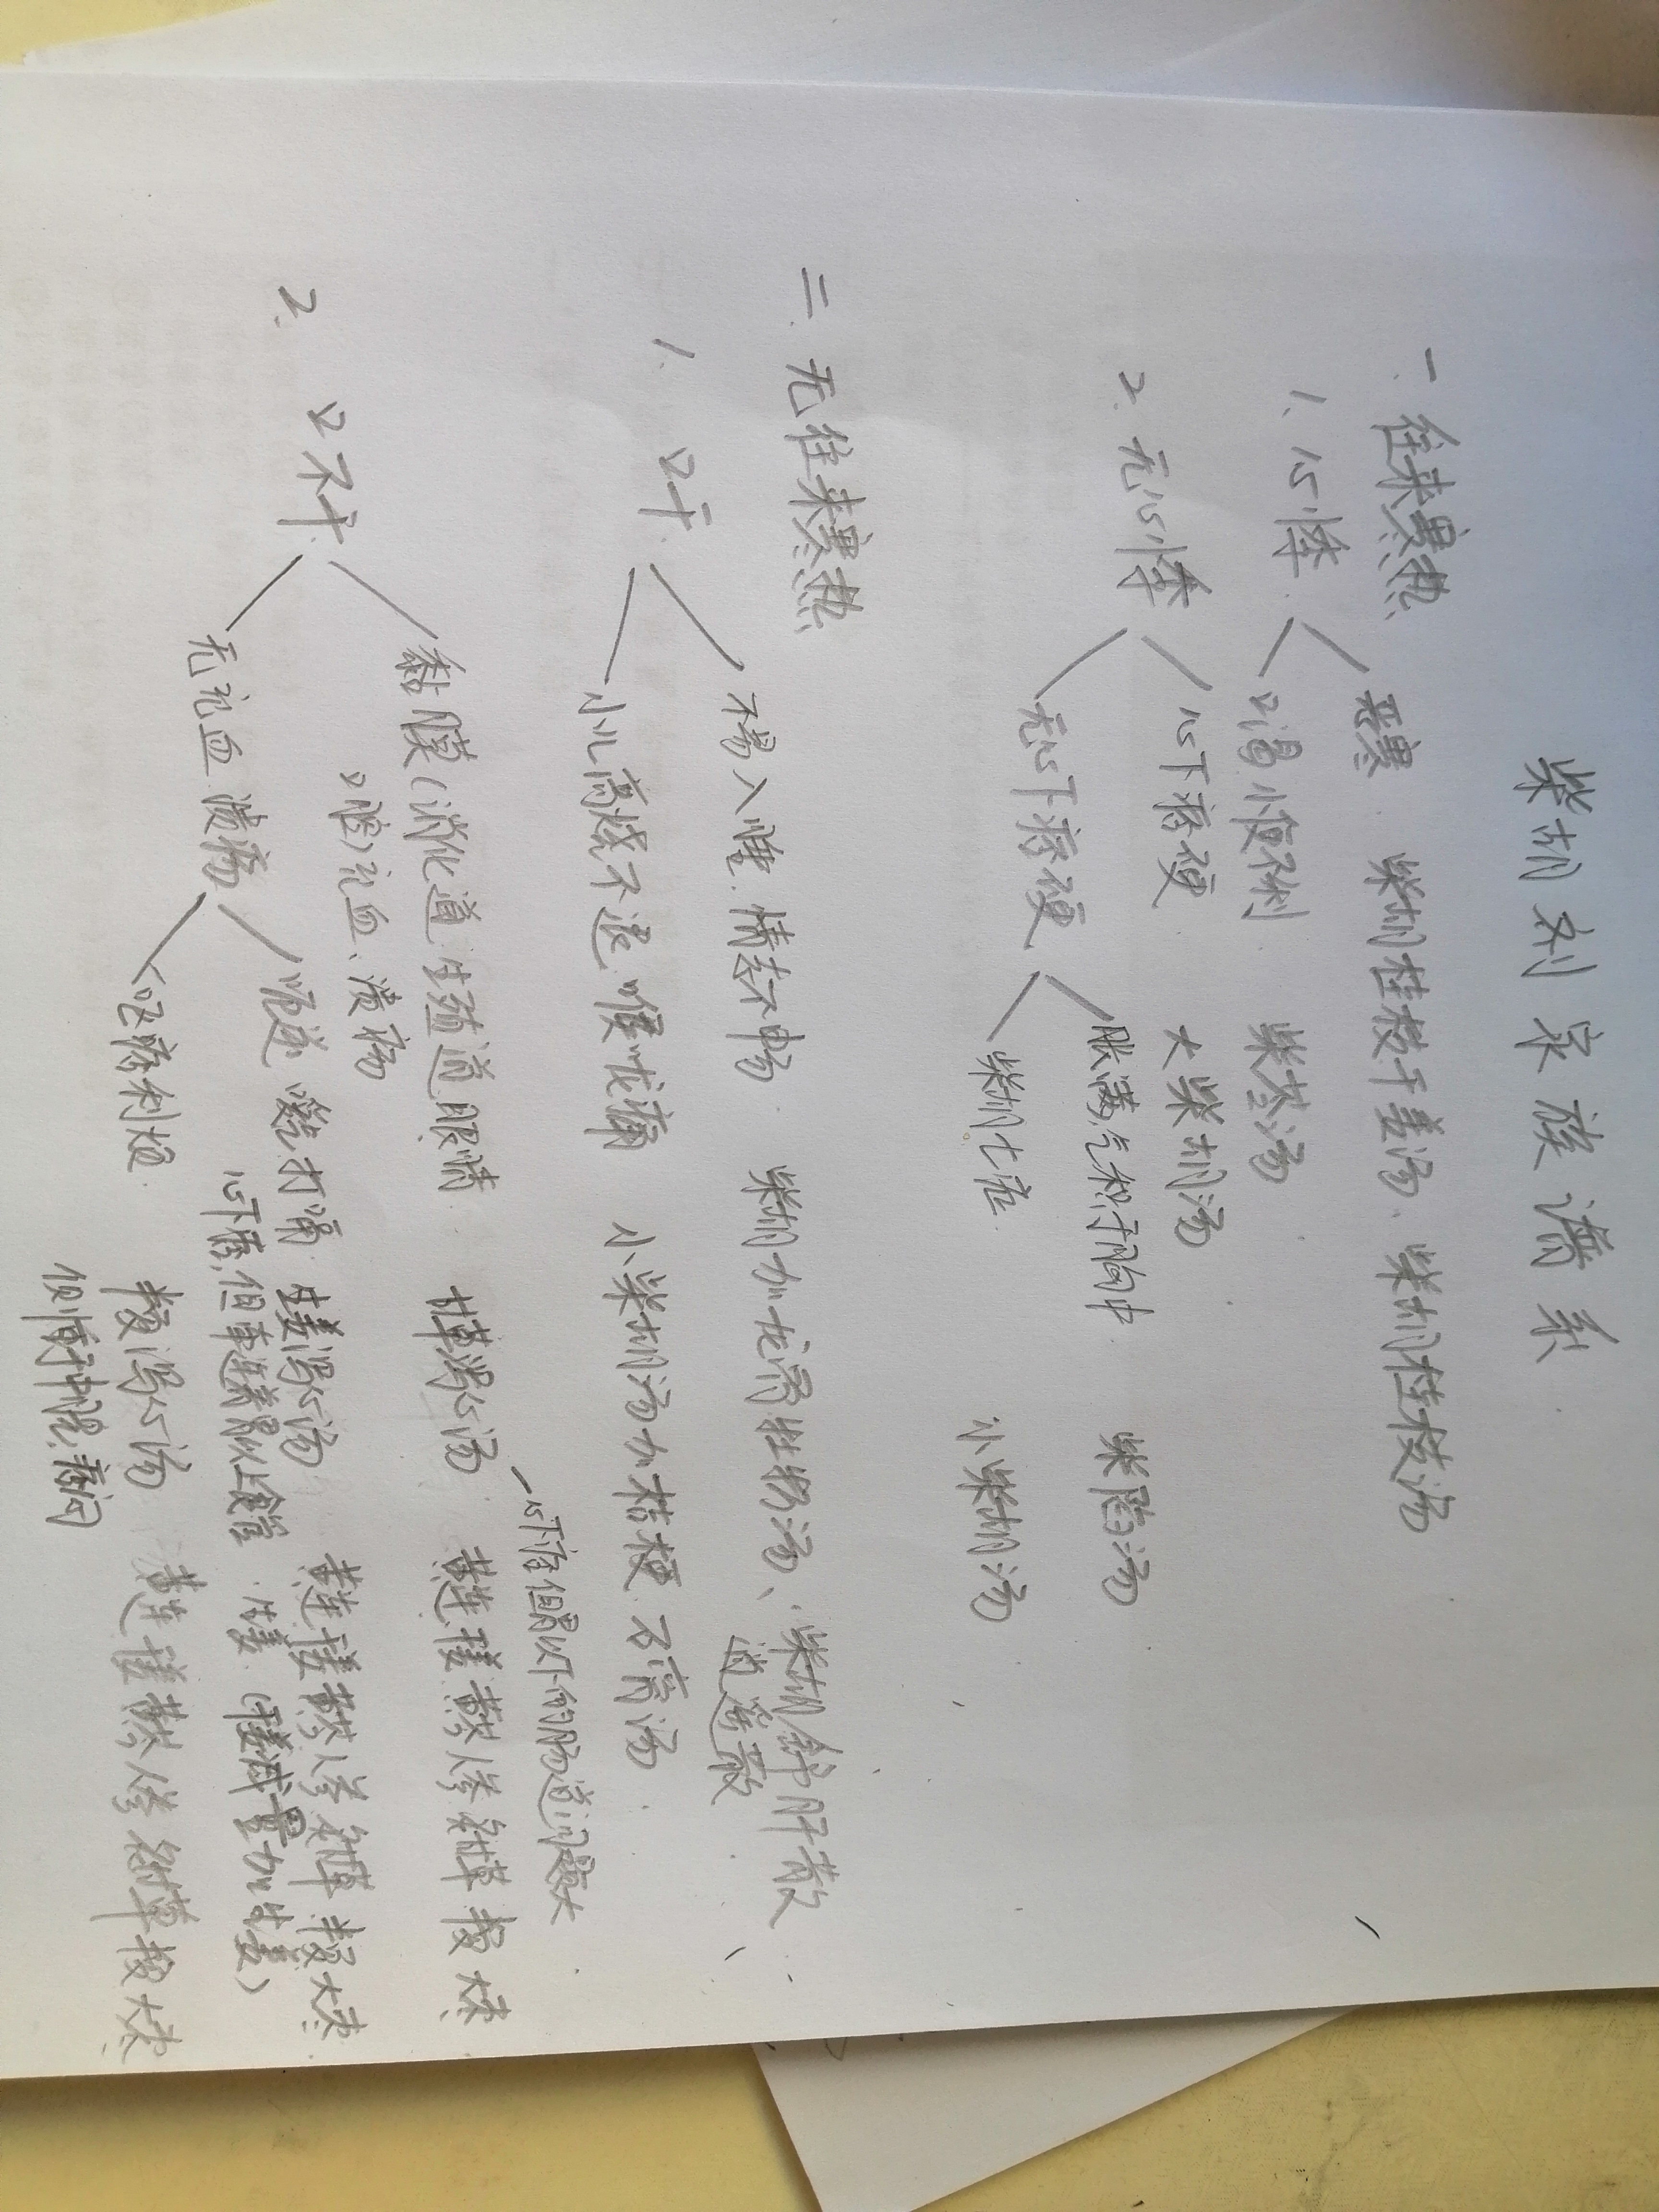 柴胡剂家族谱系
一.往来寒热
1、心悸
恶寒 柴胡桂枝干姜汤、柴胡桂枝汤
口渴小便不利 柴苓汤
2.无心悸
心下痞硬 大柴胡汤
无心下痞硬
胀满,气积于胸中 柴陷汤
柴胡七症 小柴胡汤
二.无往来寒热
1.口干
不易入睡.情志不畅 柴胡加龙骨牡蛎汤、柴胡疏肝散
逍遥散
小儿高烧不退 喉咙痛 小柴胡汤加桔梗 石膏汤
2.口不干
心下痞 但胃以下的肠道问题大
黏膜(消化道 生殖道 眼睛 甘草泻心汤 黄连 芩 人参 草 大枣
口腔)充血、溃疡
无充血 溃疡
呃逆 嗳气 打嗝 生姜泻心汤 黄连 芩 人参 草 半夏 大枣
心下痞,但 胃以上食管 生姜(干姜减量加生姜)
呕 痞 利 烦 半夏泻心汤 黄连 芩 人参 草 大枣